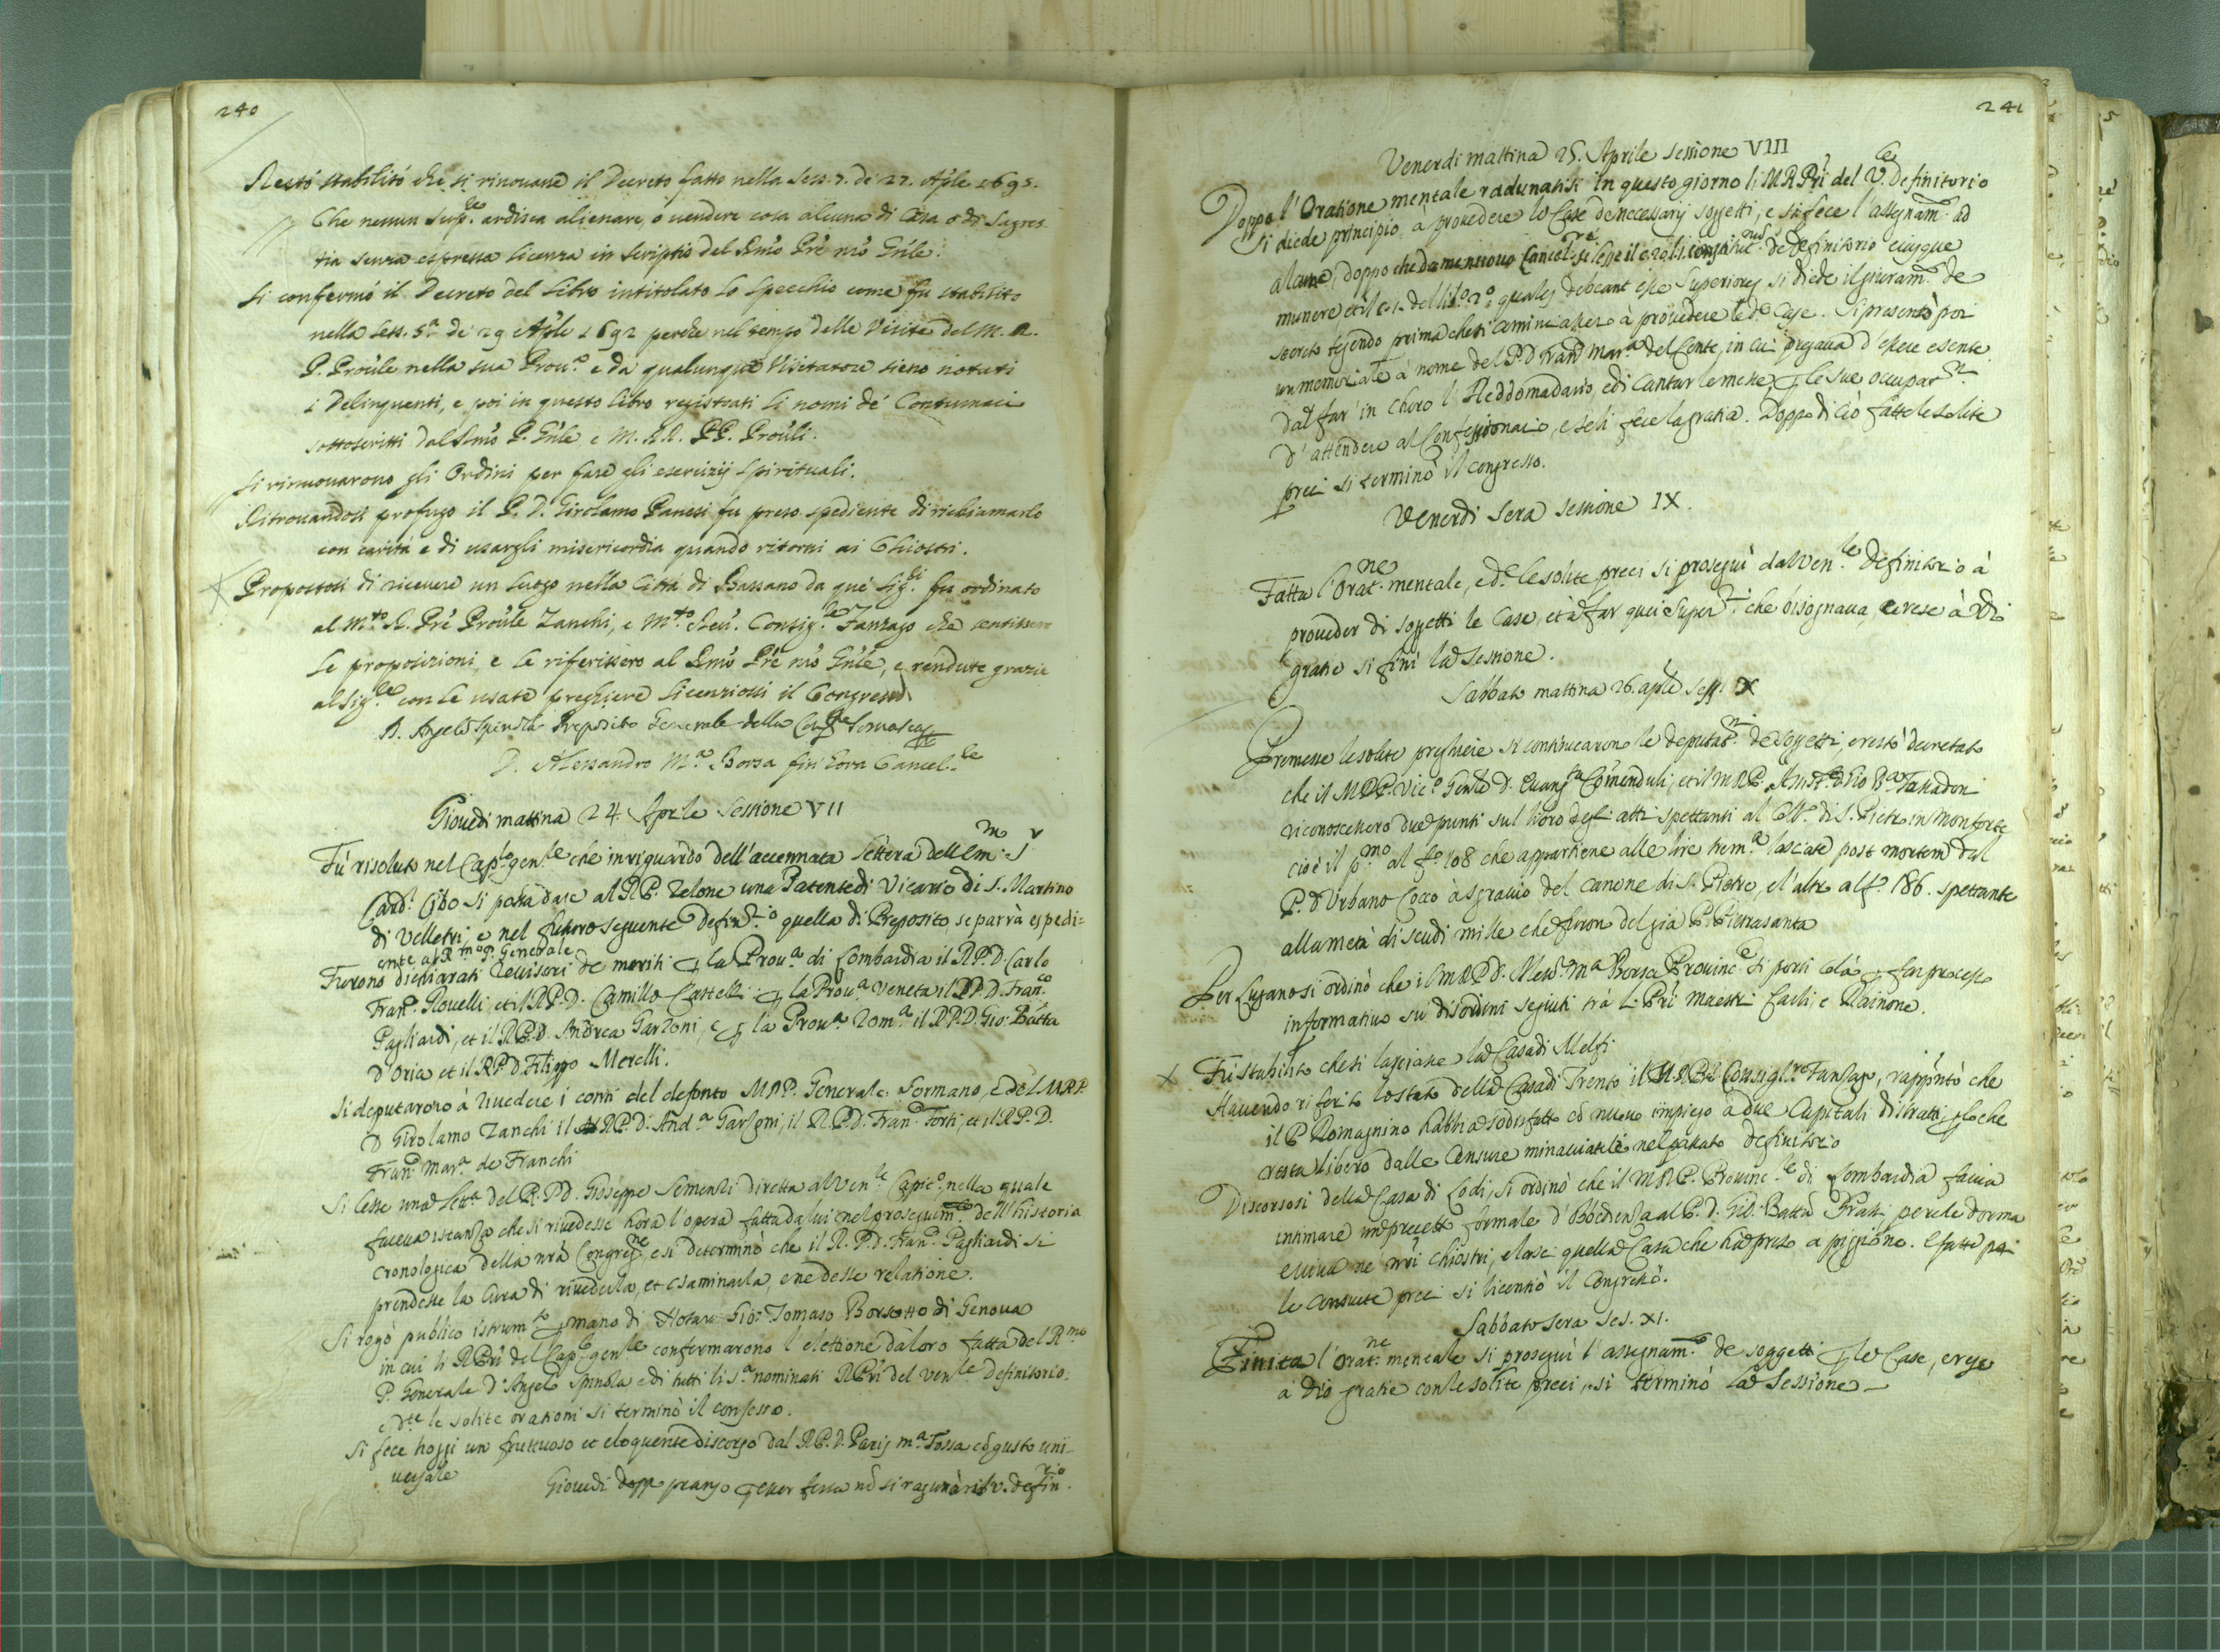 240
Restò stabilito che si rinouasse il Decreto fatto nella Sess. 7. de 27. Aple 1695.
Che nessun Sup.re ardisca alienare, o uendere cosa alcuna di Casa o di Sagres
tia senza espressa licenza in Scriptis del Rmo Pre nro Gnle.
Si confermò il Decreto del Libro intitolato lo Specchio come fu stabilito
nella Sess. 5a de 29 Aple 1692 perche nel tempo delle Visite del M. R.
P. Proule nella sua Prou.a e da qualunque Visitatore sieno notati
i Delinquenti, e poi in questo libro registrati li nomi de' Contumaci
sottoscritti dal Rmo P. Gnle e M. RR. PP. Prouli.
Si rinnouarono gli Ordini per fare gli esercizij spirituali.
Ritrouandosi profugo il P. D. Girolamo Panessi fu preso spediente di richiamarlo
con carità e di usargli misericordia quando ritorni ai Chiostri.
Propostosi di riceuere un luogo nella Città di Bassano da que' Sig.ri fu ordinato
al M.to R. Pre Proule Zanchi, e M.to Reu. Consig.re Fanzago che sentissero
le proposizioni, e le riferissero al Rmo Pre nro Gnle, e rendute grazie
al Sig.re con le usate preghiere licenziossi il Congresso
D. Angelo Spinola Preposito Generale della Cong.ne Somasca
D. Alessandro M.a Borsa fin' hora Cancel.re
Giouedi mattina 24 Aprile Sessione VII
Fù risoluto nel Cap.lo gen.le che in riguardo dell'accennata lettera dell'Em.mo Sr
Card. Cibo si possa dare al RP. Zelone una Patente di Vicario di S. Martino
di Velletri e nel futuro seguente Defin.rio quella di Preposito, se parrà espedi=
ente al R.mo P. Generale
Furono dichiarati Reuisori de meriti ꝑ la Prou.a di Lombardia il RP. D. Carlo
Fran.o Rouelli, et il RP. D. Camillo Castelli: ꝑ la Prou.a Veneta il RP. D. Fran.co
Pagliardi, et il RP. D. Andrea Garzoni, e ꝑ la Prou.a Rom.a il RP. D. Gio: Batta
d'Oria et il RP D. Filippo Merelli.
Si deputarono à riuedere i conti del defonto MRP. Generale Sormano, e del MRP
D Girolamo Zanchi il RP. D. And.a Garzoni, il RP. D. Fran.o Forti, et il RP. D.
Fran.o Mar.a de Franchi
Si lesse una Lett.a del RP. D. Giuseppe Semenzi diretta al Ven.le Cap.lo, nella quale
faceua istanza che si riuedesse hora l'opera fatta da lui nel proseguim.to dell'historia
cronologica della nra Congreg.ne, e si determinò che il R. P. D. Fran.o Pagliardi si
prendesse la cura di riuederla, et esaminarla, e ne desse relatione.
Si rogò publico istrum.to ꝑ mano di Notaro Gio: Tomaso Borsotto di Genoua
in cui li RPri del Cap.lo gen.le confermarono l'elettione da loro fatta del R.mo
P. Generale D. Angelo Spinola e di tutti li S.a nominati RPri del Ven.le Definitorio:
e d.te le solite orationi si terminò il consesso.
Si fece hoggi un fruttuoso et eloquente discorso dal RP. D. Paris M.a Tossa cō gusto uni-
uersale
Giouedi doppo pranzo ꝑ esser festa nō si ragunò il V. Defin.rio
241
Venerdi mattina 25. Aprile Sessione VIII
Doppo l'Oratione mentale radunatisi in questo giorno li MRPri del V.le Definitorio
si diede principio à prouedere le Case de necessarij soggetti, e si fece l'assegnam.to ad
alcune, doppo che da me nuouo Cancel.re si lesse il
munere et il c. 1. del lib.o 2.o quales debeant esse Superiores, si diede il giuram.to de
secreto tegendo prima che si cominciasse à prouedere le d.e Case. Si presentò poi
un memoriale à nome del P. D. Fran.o Mar.a del Conte, in cui pregaua d'essere esente
dal far' in choro l'Heddomadario, e di cantar le messe ꝑ le sue occupat.ni
d'attendere al Confessionario, e se li fece la gratia. Doppo di ciò fatte le solite
preci si terminò il congresso.
Venerdi sera Sessione IX.
Fatta l'Orat.ne mentale, e d.e le solite preci si proseguì dal Ven.le Definitorio à
proueder di soggetti le Case, et à far quei Super.ri che bisognaua, e rese à Dio
gratie si finì la Sessione.
Sabbato mattina 26. aple Sess. X
Premesse le solite preghiere si continuarono le deputat.ni de soggetti, e restò decretato
che il MRP. Vic.o Gnle D. Euang.ta Comenduli, et il MRP. Ass.te D. Gio B.a Fanadon
riconoscessero due punti sul libro degli atti spettanti al Coll.o di S. Pietro in Monforte
cioè il p.mo al f.o 108 che appartiene alle lire trem.a lasciate post mortem dal
P. D. Urbano Coco à sgrauio del canone di S. Pietro, e l'altro al f.o 186. spettante
alla metà di scudi mille che furon del già P. Pietrasanta
Per Lugano si ordinò che il MRP D. Aless.o M.a Borsa Prouinc.le si porti colà ꝑ far processo
informatiuo sù disordini seguiti trà li Pri Maestri Carli e Rainone.
Fù stabilito che si lasciasse la Casa di Melfi
Hauendo riferito lo stato della Casa di Trento il M.R.P. Consigl.re Fanzago, rapportò che
il P. Romagnino habbia sodisfatto cō nuouo impiego à due Capitali distratti, ꝑ lo che
resta libero dalle Censure minacciateli nel passato Definitorio
Discorsosi della Casa di Lodi, si ordinò che il MRP. Prouinc.le di Lombardia faccia
intimare un precetto formale d'Obedienza al P. D. Gio: Batta Prati perche dorma
e uiua ne nri chiostri, e lasci quella Casa che hà preso a piggione. E fatte poi
le consuete preci si licentiò il Congresso.
Sabbato sera Ses. XI.
Finita l'Orat.ne mentale si proseguì l'assegnam.to de soggetti ꝑ le Case, e rese
à Dio gratie con le solite preci, si terminò la Sessione